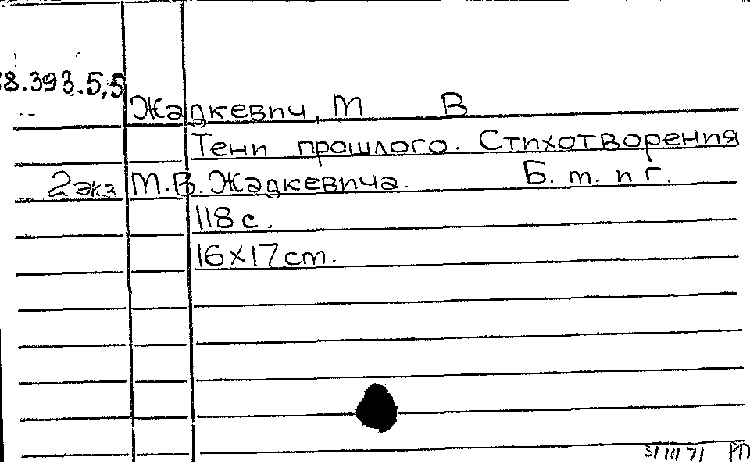 38.393.5,5
Жадкевич, М В
Тени прошлого. Стихотворения
2 экз М.В. Жадкевича. Б. m. и г.
118 с.
16х17 cm.
31 III 71 РП